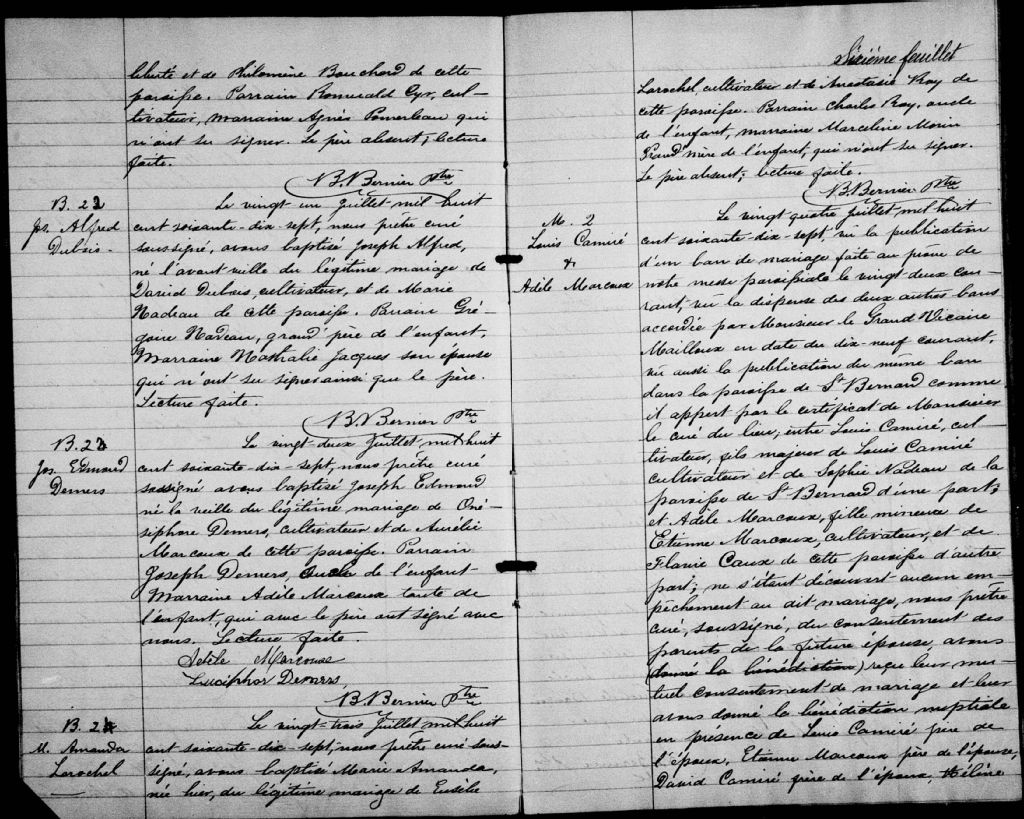 liberté et de Philomène Bouchard de cette
paroisse. Parrain Romuald Cyr, cul-
tivateur, marraine Agnès Pomerleau qui
n'ont su signer. Le père absent; lecture
faite.
B. Bernier Ptre
B. 22
Jos. Alfred
Dubois
Le vingt un Juillet mil huit
cent soixante-dix-sept, nous prêtre curé
soussigné, avons baptisé Joseph Alfred,
né l'avant veille du légitime mariage de
David Dubois, cultivateur, et de Marie
Nadeau de cette paroisse. Parrain Gré-
goire Nadeau, grand'père de l'enfant,
Marraine Nathalie Jacques son épouse
qui n'ont su signer ainsi que le père.
Lecture faite.
B. Bernier Ptre
B. 23
Jos. Edmond
Demers
Le vingt-deux Juillet mil huit
cent soixante-dix-sept, nous prêtre curé
sossigné avons baptisé Joseph Edmond
né la veille du légitime mariage de Oné-
siphore Demers, cultivateur et de Aurélie
Marcoux de cette paroisse. Parrain
Joseph Demers, oncle de l'enfant
Marraine Adèle Marcoux tante de
l'enfant, qui avec le père ont signé avec
nous. Lecture faite.
Adèle Marcouxe
Demers
B. Bernier Ptre
B. 24
M. Amanda
Larochel
Le vingt-trois Juillet mil huit
cent soixante-dix-sept, nous prêtre curé sous-
signé, avons baptisé Marie Amanda,
née hier, du légitime mariage de Eusèbe
Sixième feuillet
Larochel cultivateur et de Anastasie Roy de
cette paroisse. Parrain Charles Roy, oncle
de l'enfant, marraine Marceline Morin
Grand'mère de l'enfant, qui n'ont su signer.
Le père absent; lecture faite.
B. Bernier Ptre
M. 2
Louis Camiré
&
Adèle Marcoux
Le vingt quatre Juillet mil huit
cent soixante-dix-sept, vu la publication
d'un ban de mariage faite au prône de
notre messe paroissiale le vingt deux cou-
rant, vu la dispense des deux autres bans
accordée par Monsieur le Grand Vicaire
Mailloux en date du dix-neuf courant,
vu aussi la publication du même ban
dans la paroisse de St Bernard comme
il appert par le certificat de Monsieur
le curé du lieu, entre Louis Camiré, cul-
tivateur, fils majeur de Louis Camiré
cultivateur et de Sophie Nadeau de la
paroisse de St Bernard d'une part;
et Adèle Marcoux, fille mineure de
Etienne Marcoux, cultivateur, et de
Flavie Caux de cette paroisse d'autre
part; ne s'étant découvert aucun em-
pêchement au dit mariage, nous prêtre
curé, soussigné, du consentement des
parents de la future épouse, avons
(donné la bénédiction) reçu leur mu-
tuel consentement de mariage et leur
avons donné la bénédiction nuptiale
en présence de Louis Camiré père de
l'époux, Etienne Marcoux père de l'épouse,
David Camiré frère de l'époux, Hélène